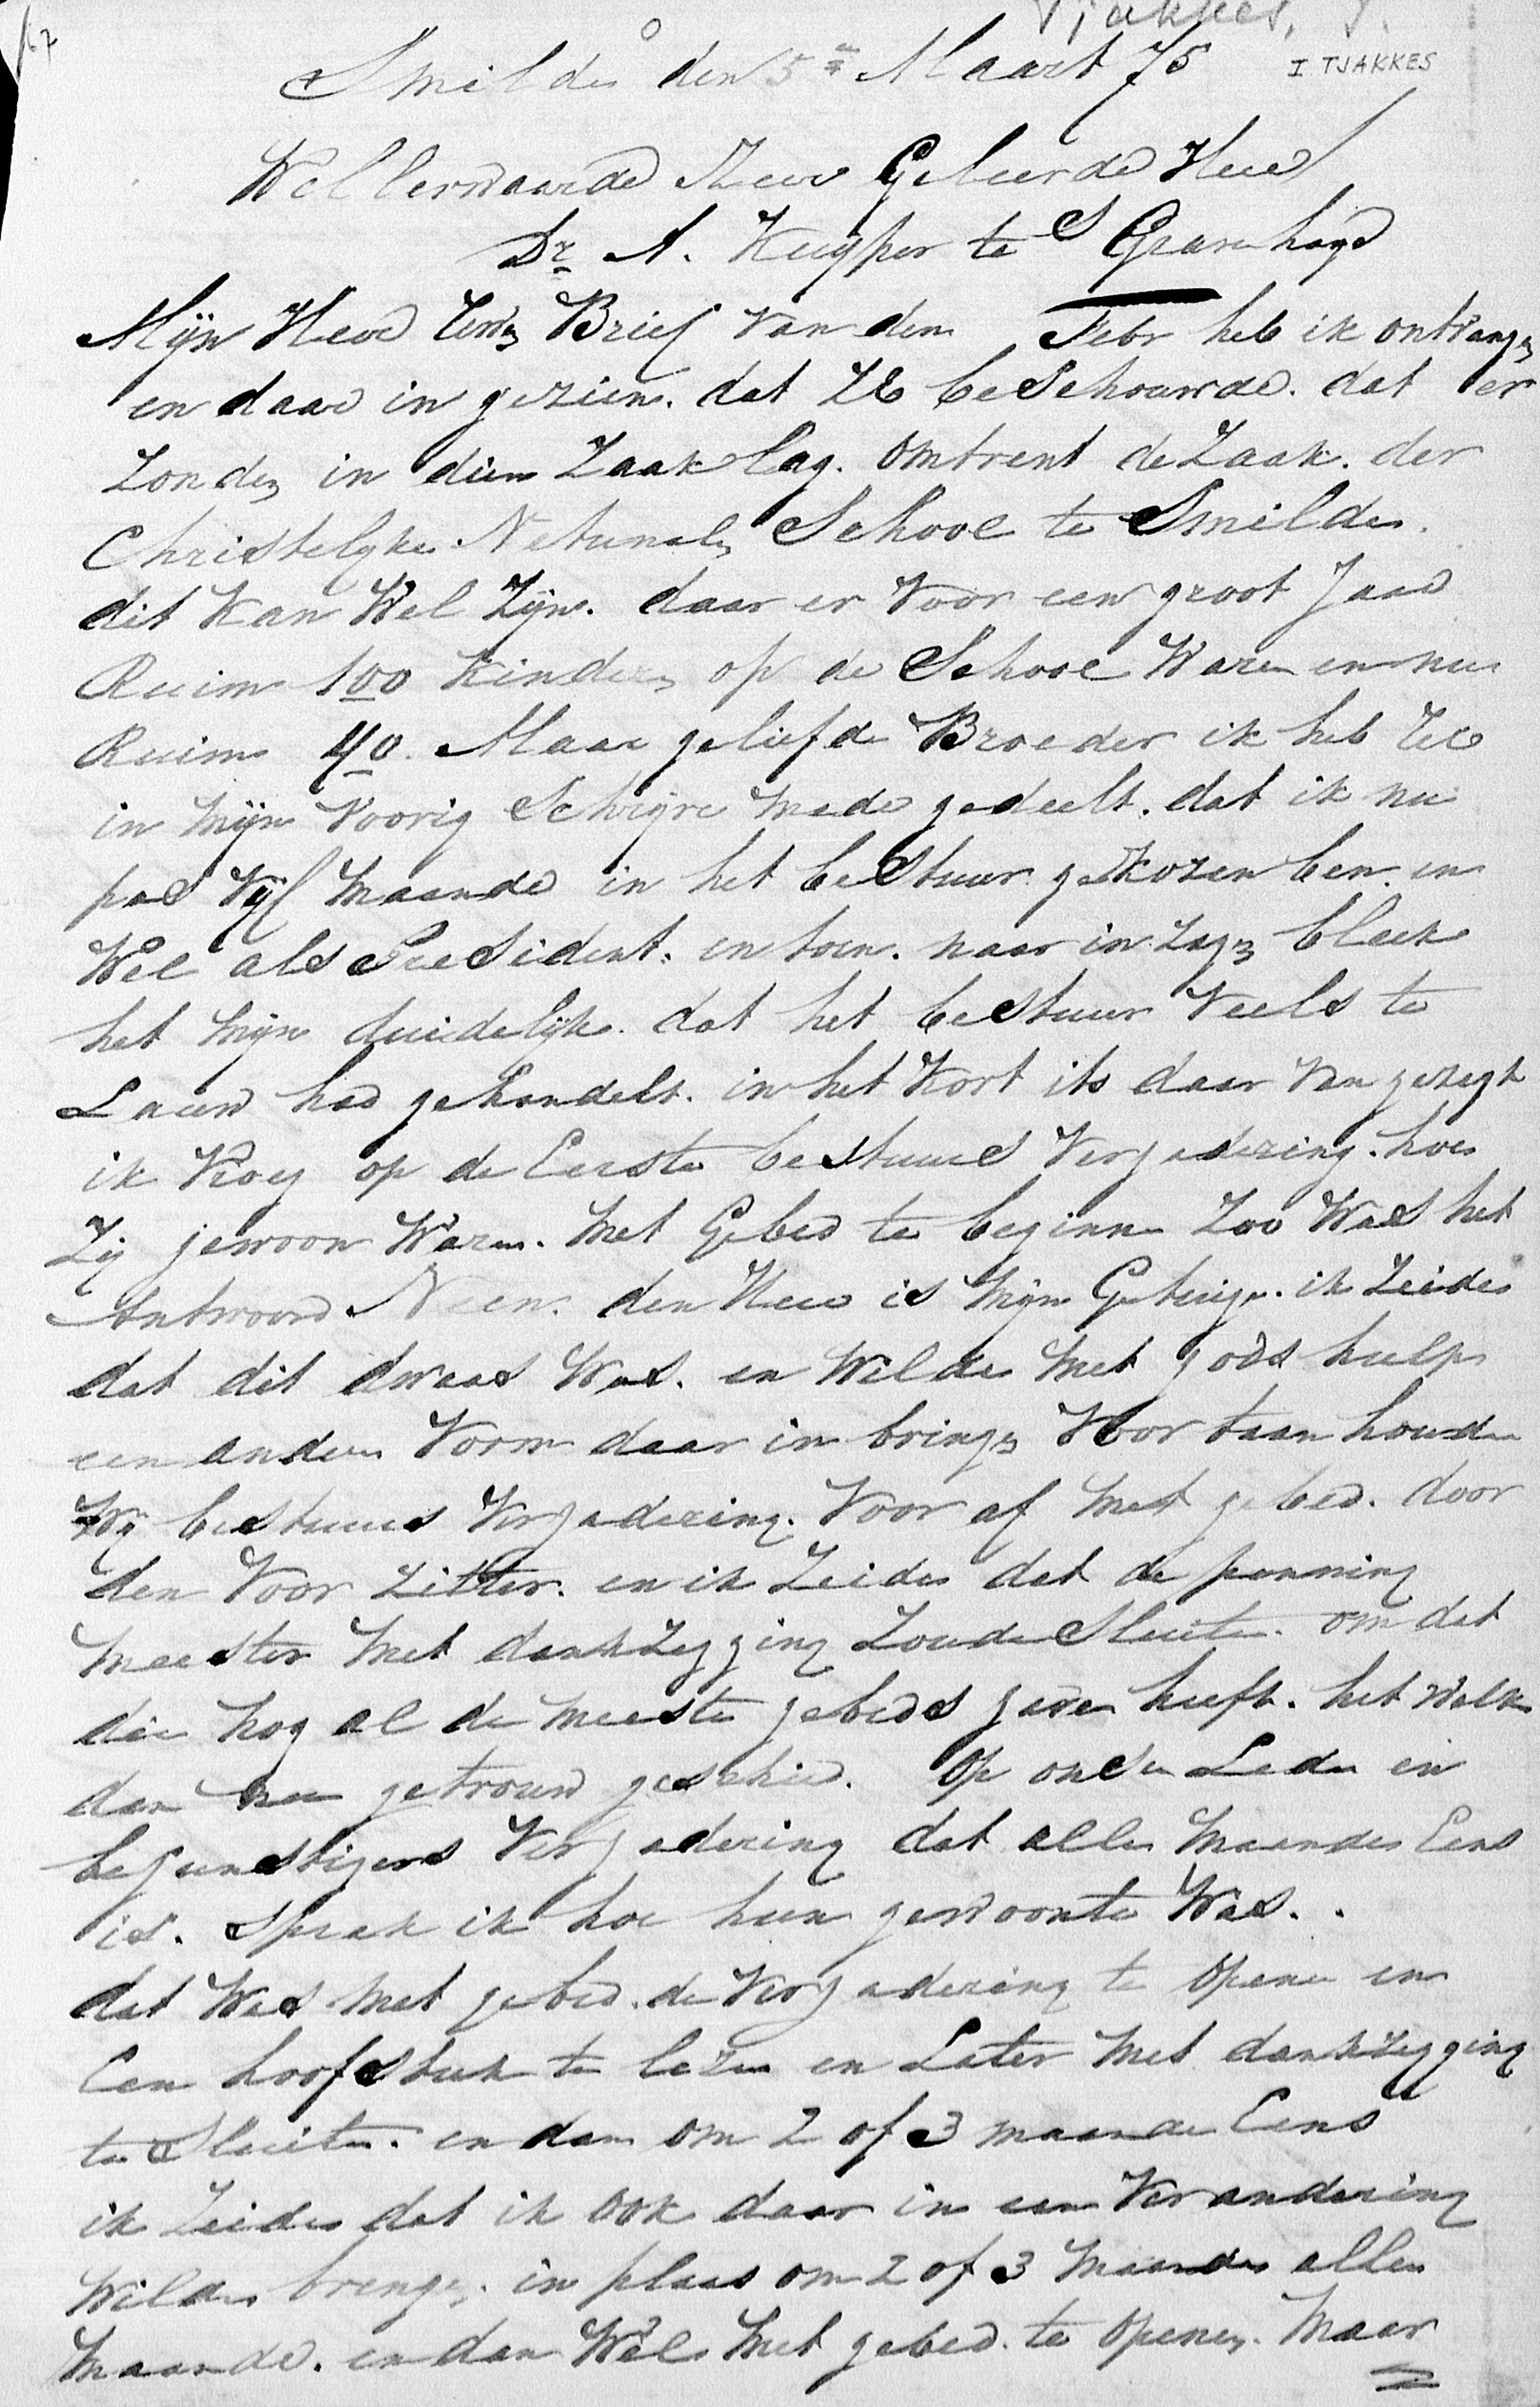 Tjakkes, J.
I. TJAKKES
Smilde den 5en Maart 75
Wellerwaarde Zeer Geleerde Heer
Dr. A. Kuyper te S Gravenhage
Mijn Heer Uwen Brief van den Febr heb ik ontvangen
en daar in gezien. dat UE beschouwde. dat er
Zonden in dien Zaak lag. omtrent de Zaak. der
Christelyke Natunalen School te Smilde.
dit kan Wel Zijn. daar er voor een groot Jaar
Ruim 100 kinderen op de School Waren en nu
Ruim 40. Maar geliefde Broeder ik heb UE
in Mijn voorig Schrijve mede gedeelt. dat ik nu
pas Vijf Maande in het beStuur gekozen ben. en
Wel als PreSident. en toen. naar in zagen bleek
het Mijn duidelijk. dat het beStuur Veels te
Lauw had gehandelt. in het kort its daar van gezegt
ik Vroeg op de Eerste bestuurs Vergadering. hoe
Zij gewoon Waren. Met Gebed te beginnen Zoo Was het
Antwoord Neen. den Heer is Mijn Getuige. ik Zeide
dat dit dwaas Was. en Wilde Met gods hulp
een anderen Vorm daar in bringen Voor taan houden
Wij bestuurs Vergadering. Voor af Met gebed. door
den Voor Zitter. en ik Zeide dat de penning
Meester Met dankZegging Zoude Sluiten. om dat
die nog al de Meeste gebeds gaven heeft. het Welk
dan nu getrouw geschied. Op onse Leden en
begunstigers Vergadering dat alle Maande Eens
is. sprak ik hoe hun gewoonte Was.
dat Was Met gebed. de Vergadering te Openen en
Een hoofstuk te lezen en Later Met dankzegging
te Sluiten. en dan om 2 of 3 maande Eens
ik Zeide dat ik ook daar in een Verandering
Wilde brengen. in plaas om 2 of 3 Maande alle
Maande. en dan Wel Met gebed. te Openen. Maar